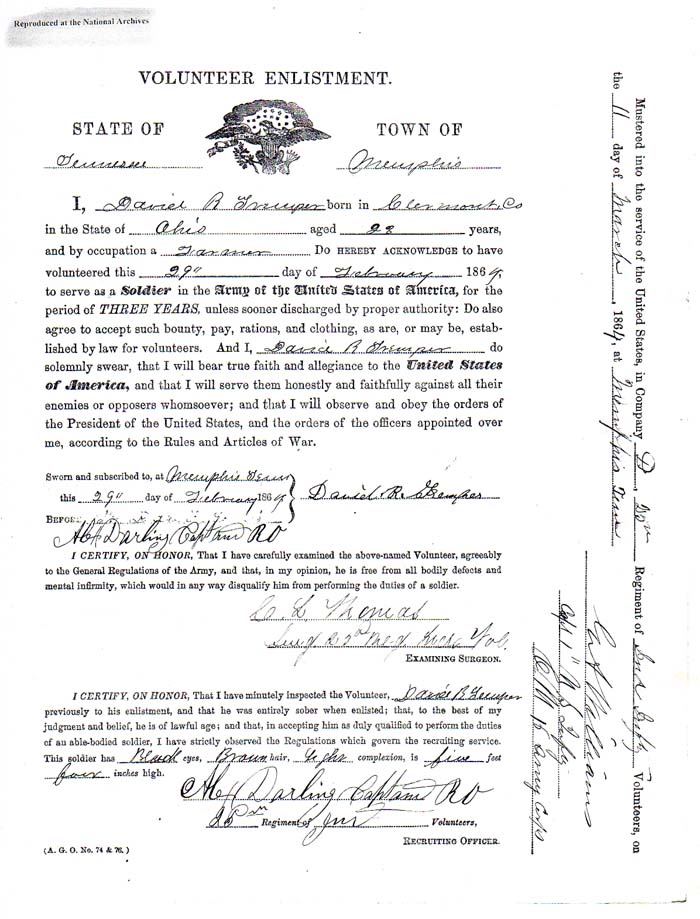 Reproduced at the National Archives
VOLUNTEER ENLISTMENT.
STATE OF TOWN OF
Tennessee Memphis
I, David R Tremper born in Clermont Co
in the State of Ohio aged 22 years,
and by occupation a Farmer DO HEREBY ACKNOWLEDGE to have
volunteered this 29" day of February 1864,
to serve as a Soldier in the Army of the United States of America, for the
period of THREE YEARS, unless sooner discharged by proper authority: Do also
agree to accept such bounty, pay, rations, and clothing, as are, or may be, estab-
lished by law for volunteers. And I, David R Tremper do
solemnly swear, that I will bear true faith and allegiance to the United States
of America, and that I will serve them honestly and faithfully against all their
enemies or opposers whomsoever; and that I will observe and obey the orders of
the President of the United States, and the orders of the officers appointed over
me, according to the Rules and Articles of War.
Sworn and subscribed to, at Memphis Tenn
this 29" day of February 1864 David R. Tremper
BEFORE
Darling Captain RO
I CERTIFY, ON HONOR, That I have carefully examined the above-named Volunteer, agreeably
to the General Regulations of the Army, and that, in my opinion, he is free from all bodily defects and
mental infirmity, which would in any way disqualify him from performing the duties of a soldier.
Thomas
Surg Reg Vol.
EXAMINING SURGEON.
I CERTIFY, ON HONOR, That I have minutely inspected the Volunteer, David R Tremper
previously to his enlistment, and that he was entirely sober when enlisted; that, to the best of my
judgment and belief, he is of lawful age; and that, in accepting him as duly qualified to perform the duties
of an able-bodied soldier, I have strictly observed the Regulations which govern the recruiting service.
This soldier has Black eyes, Brown hair, Light complexion, is five feet
four inches high.
Darling Captain RO
25th Regiment of Volunteers,
RECRUITING OFFICER.
(A. G. O. No. 74 & 76.)
Mustered into the service of the United States, in Company D, Regiment of Ind Infty Volunteers, on
the 11 day of March, 1864, at Memphis Tenn
Williams
Capt 1" U S Infty
C M 16 Army Corps